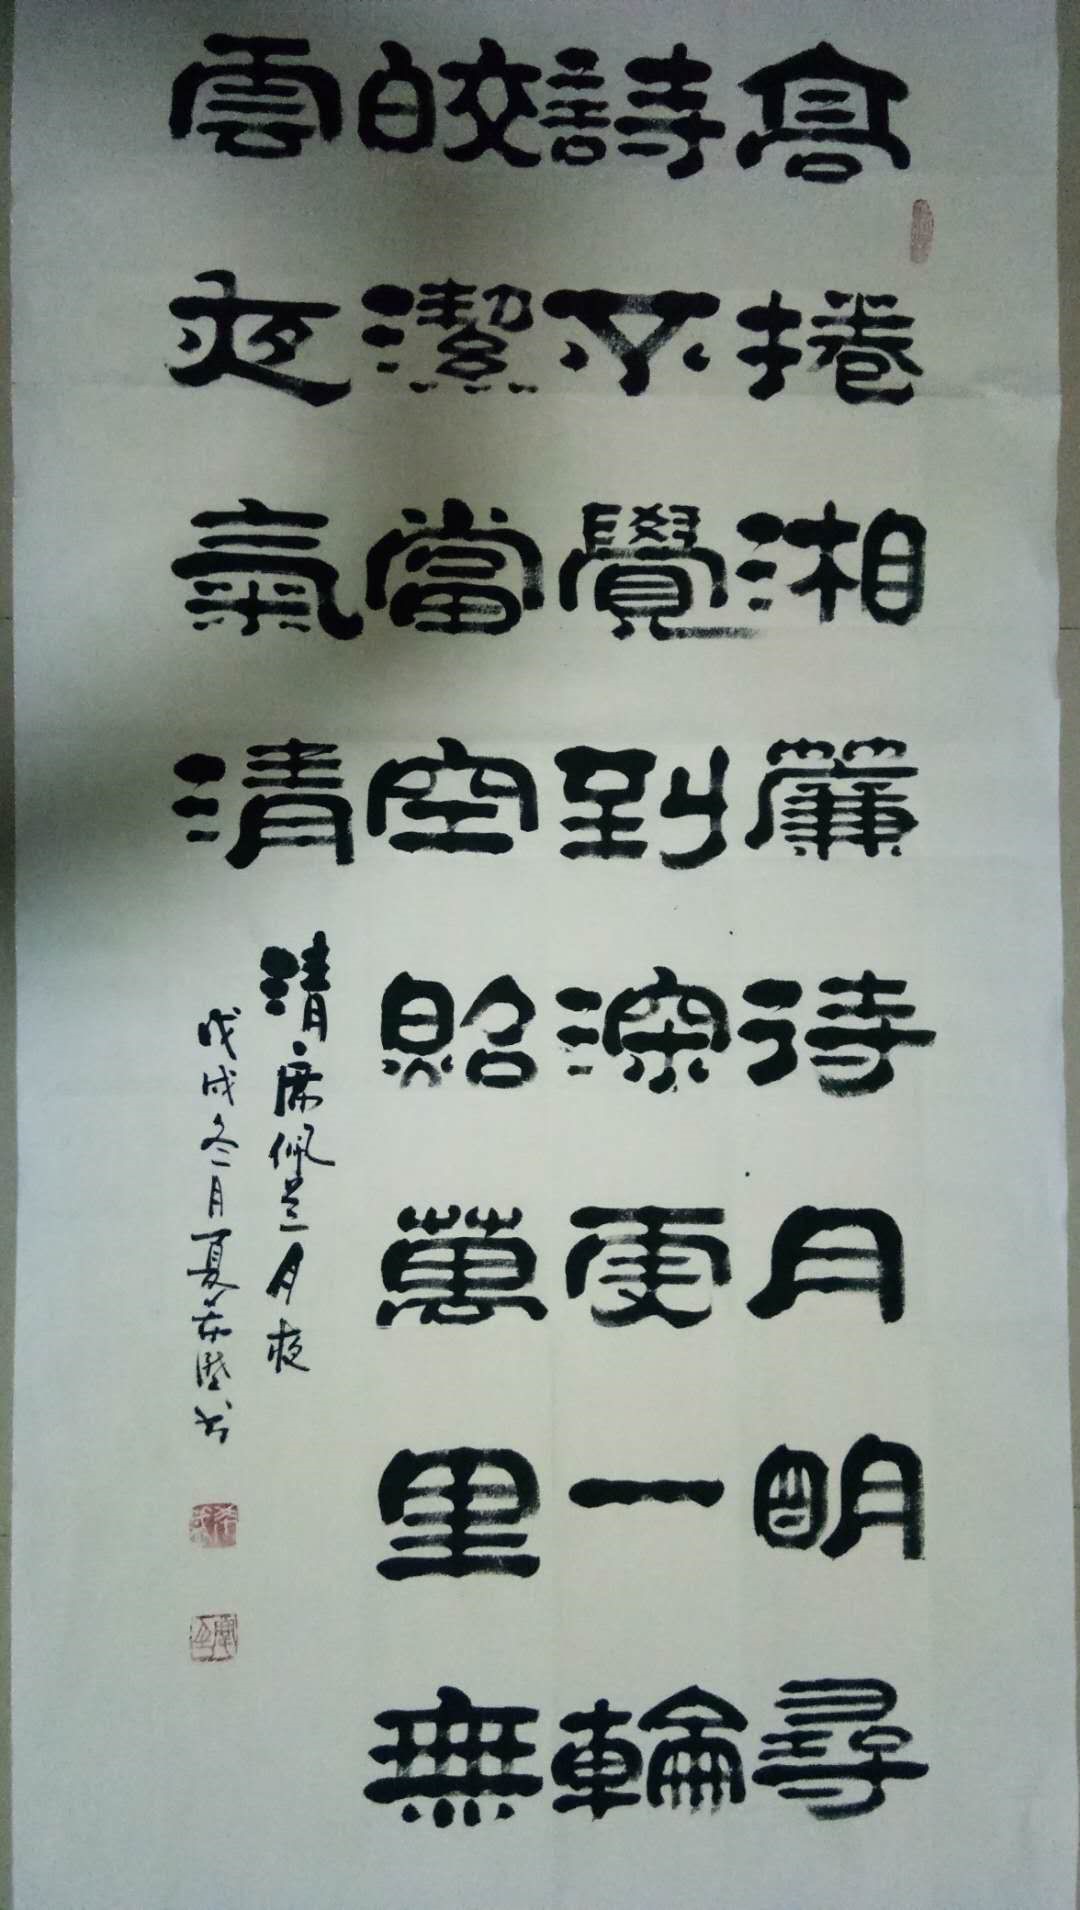 高捲湘簾待月明尋
詩不覺到深更一輪
皎潔當空照萬里無
雲夜氣清
清席佩蘭月夜
戊戌冬月夏